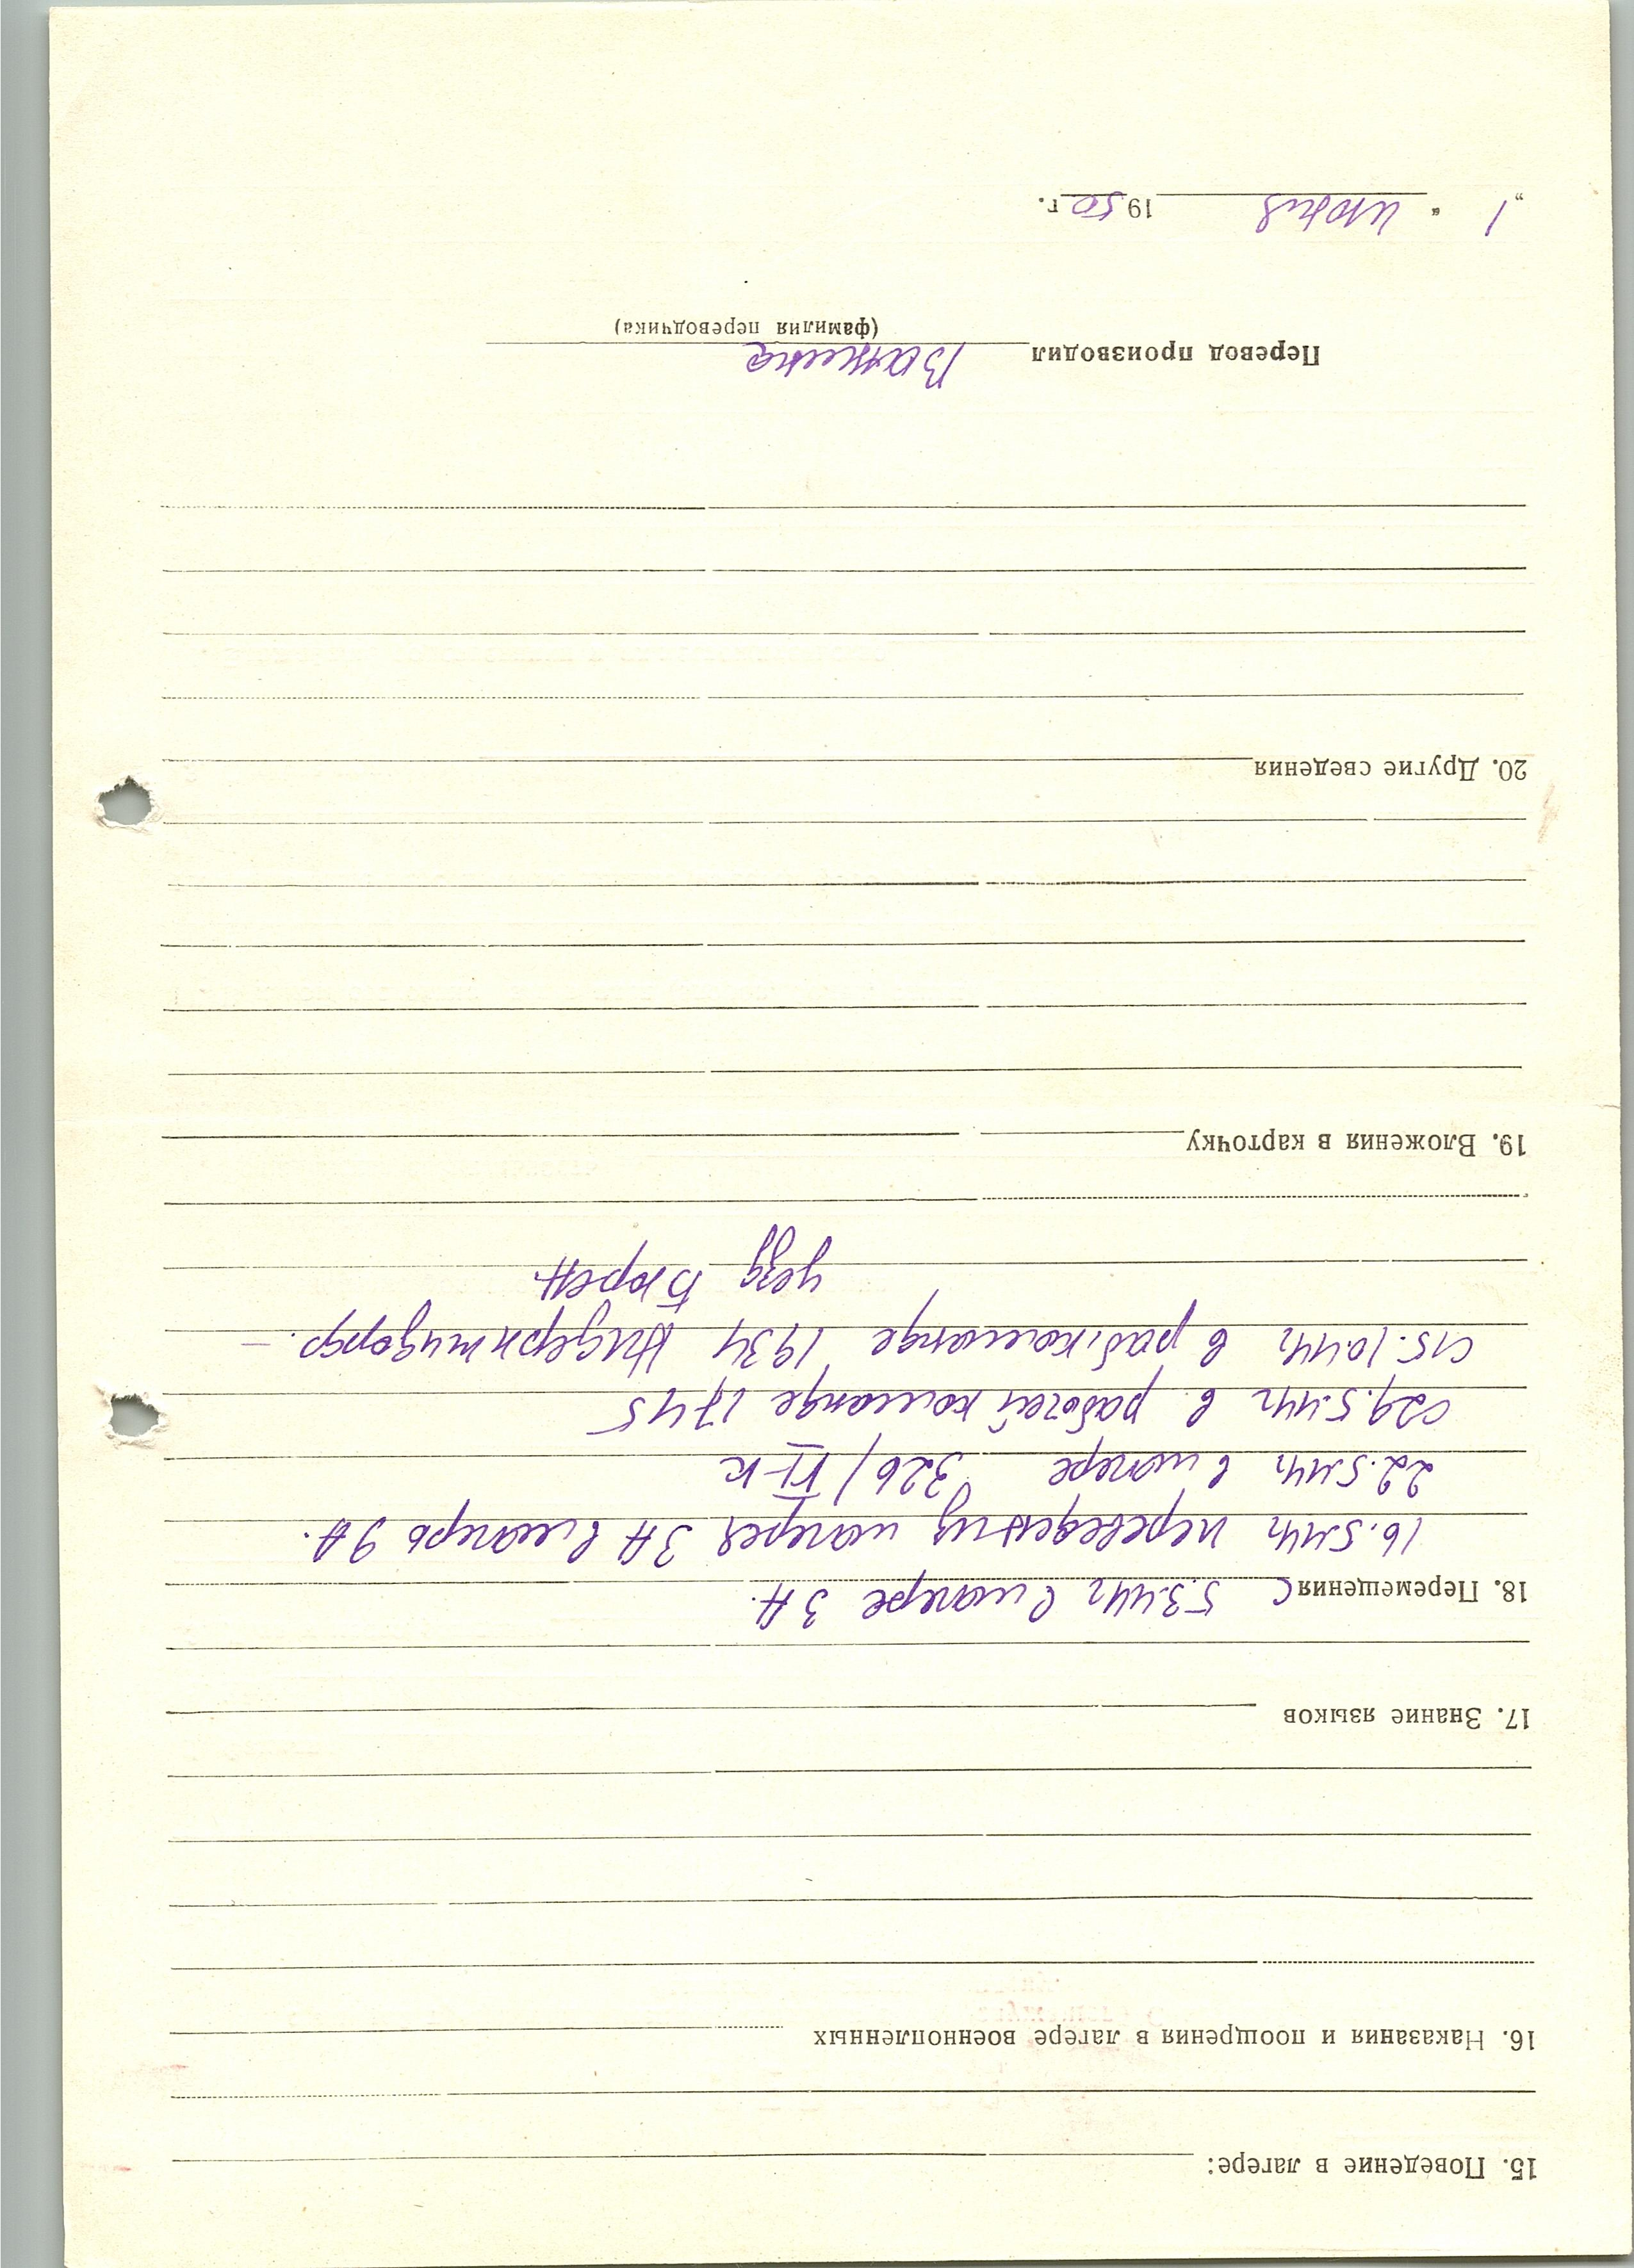 15. Поведение в лагере:
16. Наказания и поощрения в лагере военнопленных
17. Знание языков
18. Перемещения С 5.3.44г в лагере 3 А.
16.5.44г переведен из лагеря 3А в лагерь 9 А.
22.5.44г в лагере 326/VI-к
с 29.5.44г в рабочей команде 1745
с 15.10.44г в раб. команде 1934 Нидернтудорф. —
уезд Бюрен.
19. Вложения в карточку
20. Другие сведения
Перевод производил
(фамилия переводчика)
„ 1 “ июня 1950 г.